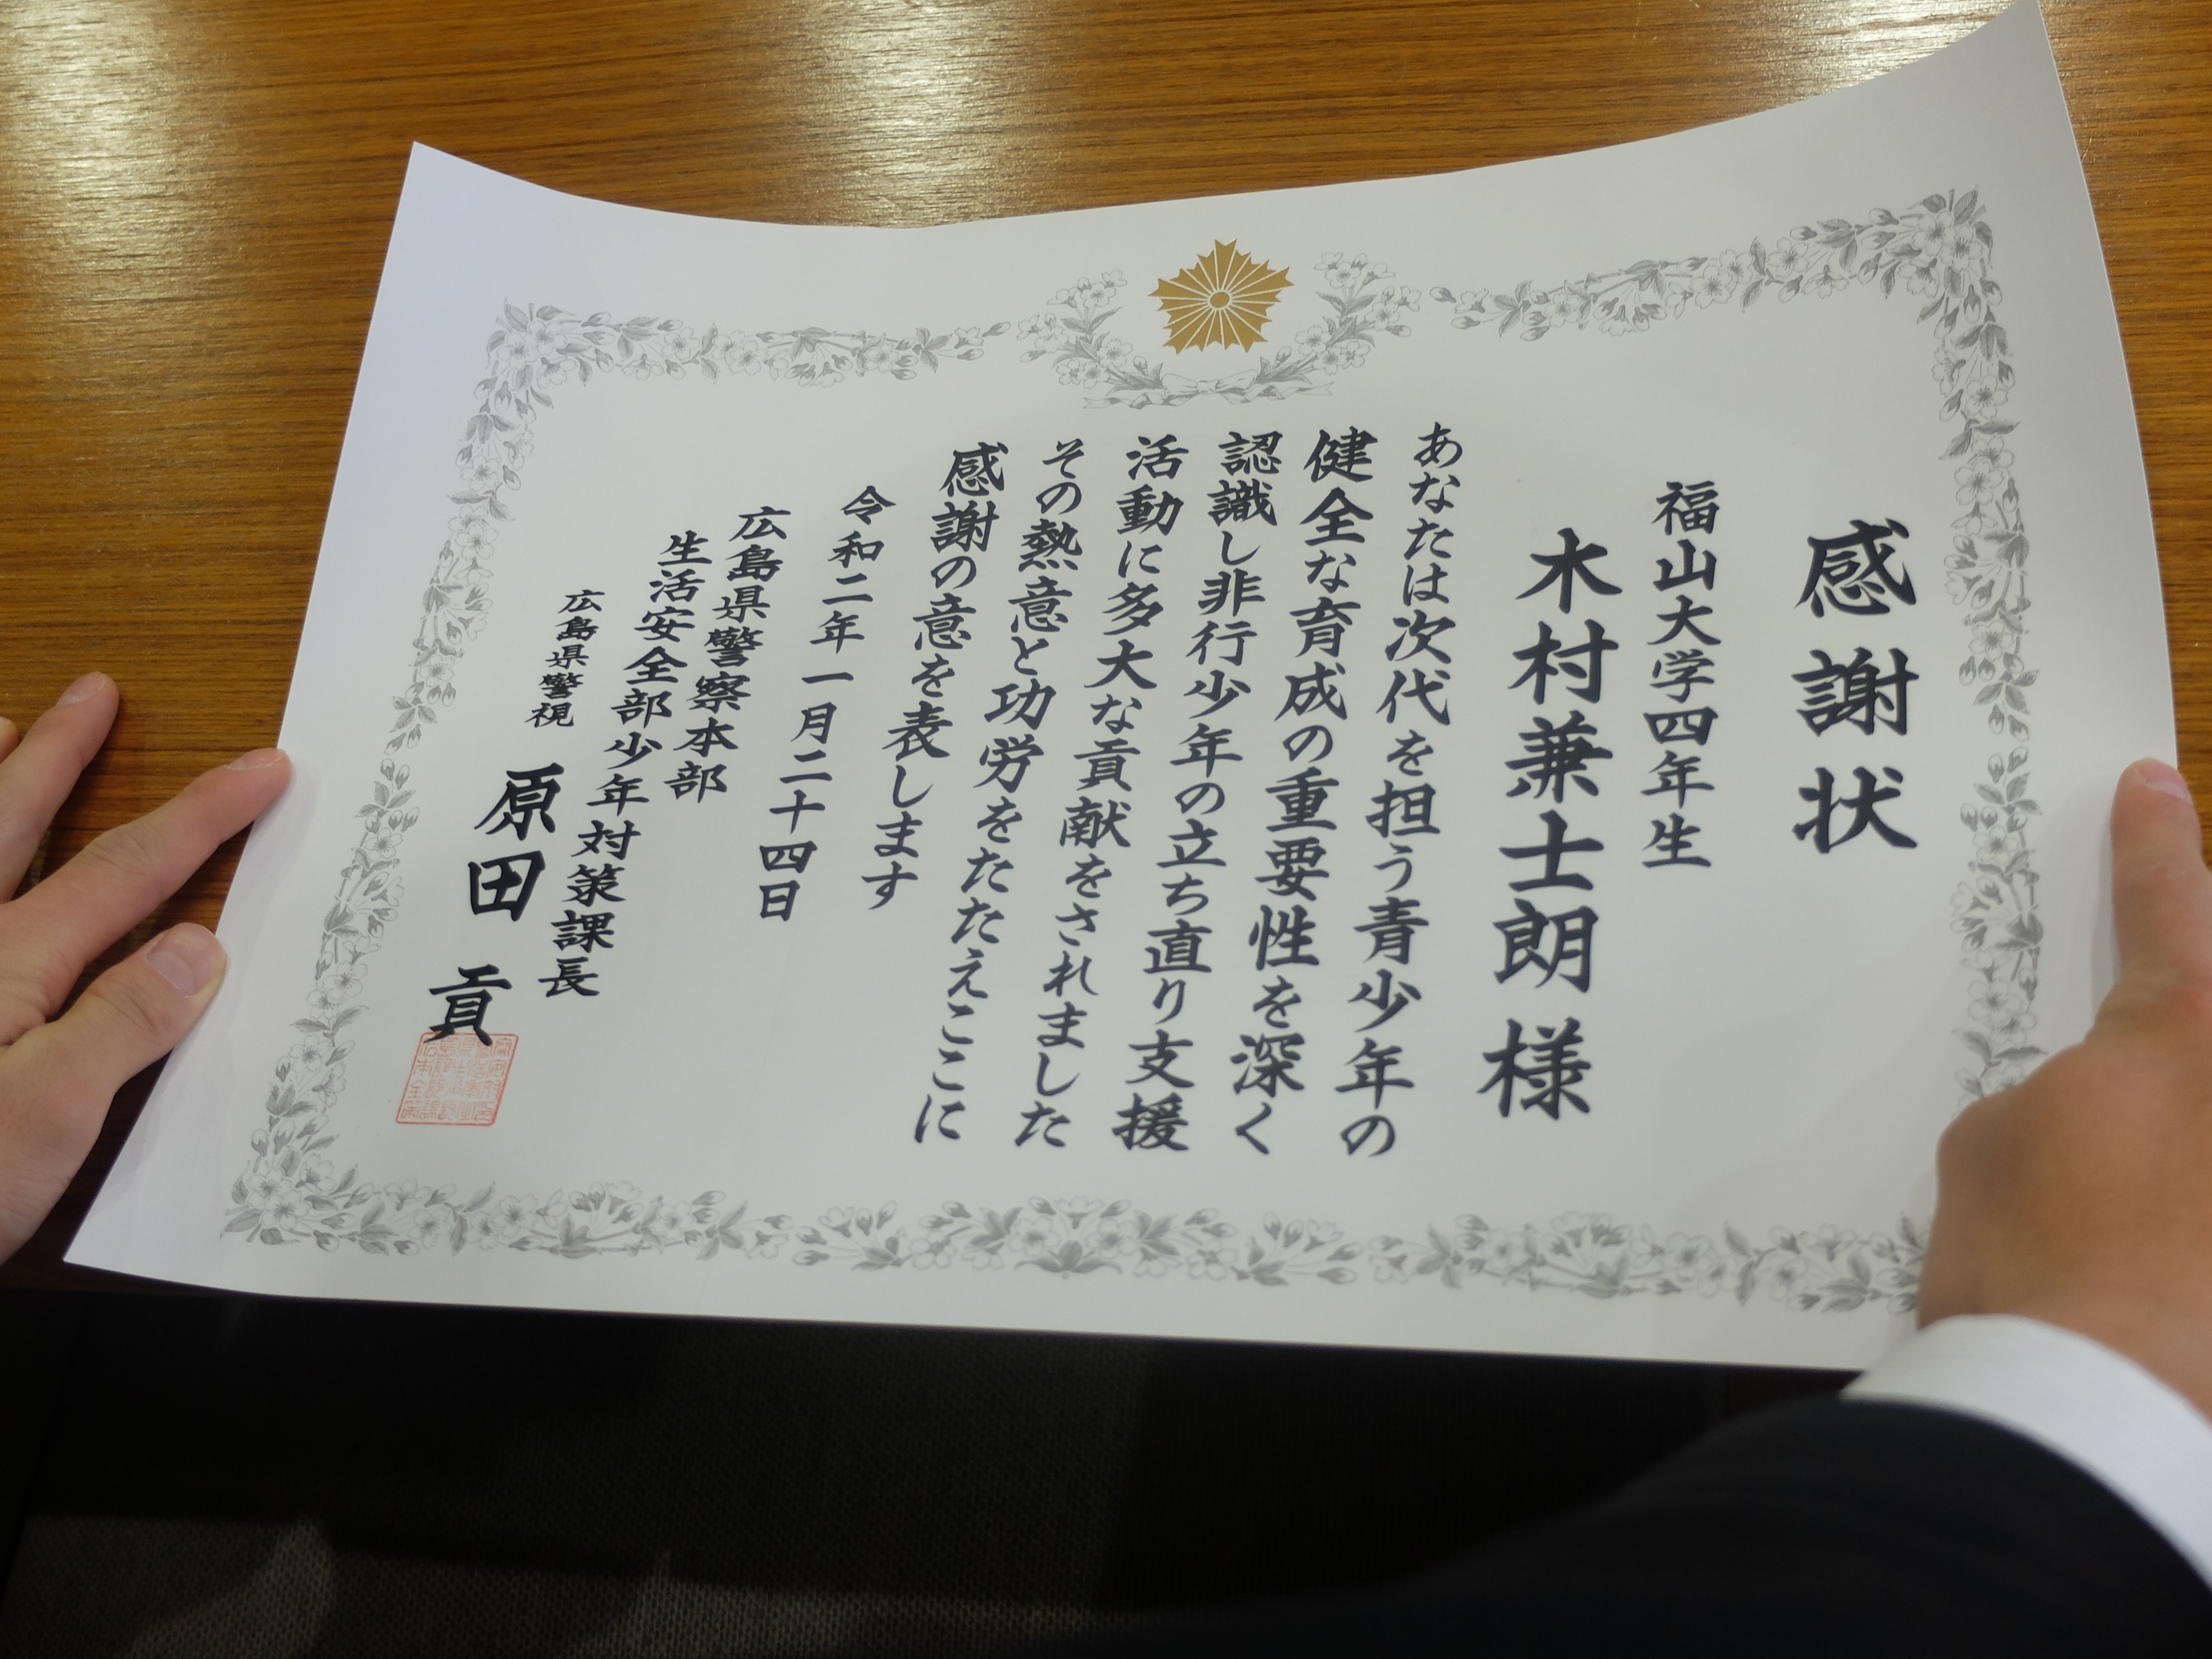 感謝状
福山大学四年生
木村兼士朗様
あなたは次代を担う青少年の
健全な育成の重要性を深く
認識し非行少年の立ち直り支援
活動に多大な貢献をされました
その熱意と功労をたたえここに
感謝の意を表します
令和二年一月二十四日
広島県警察本部
生活安全部少年対策課長
広島県警視 原田 貢